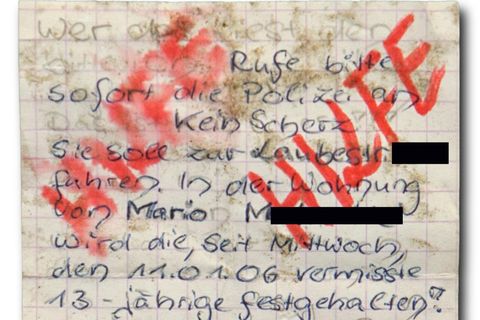 Wer das liest den
bitte Rufe bitte
sofort die Polizei an
Kein Scherz
Sie soll zur Laubestr.
fahren. In der Wohnung
von Mario M
wird die, seit Mittwoch,
den 11.01.06 vermisste
13-jährige festgehalten!
HILFE
HILFE